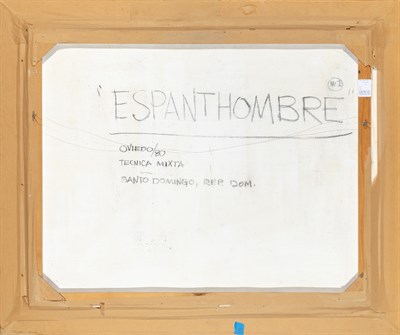 #2
"ESPANTHOMBRE"
OVIEDO/87
TECNICA MIXTA
SANTO DOMINGO, REP. DOM.